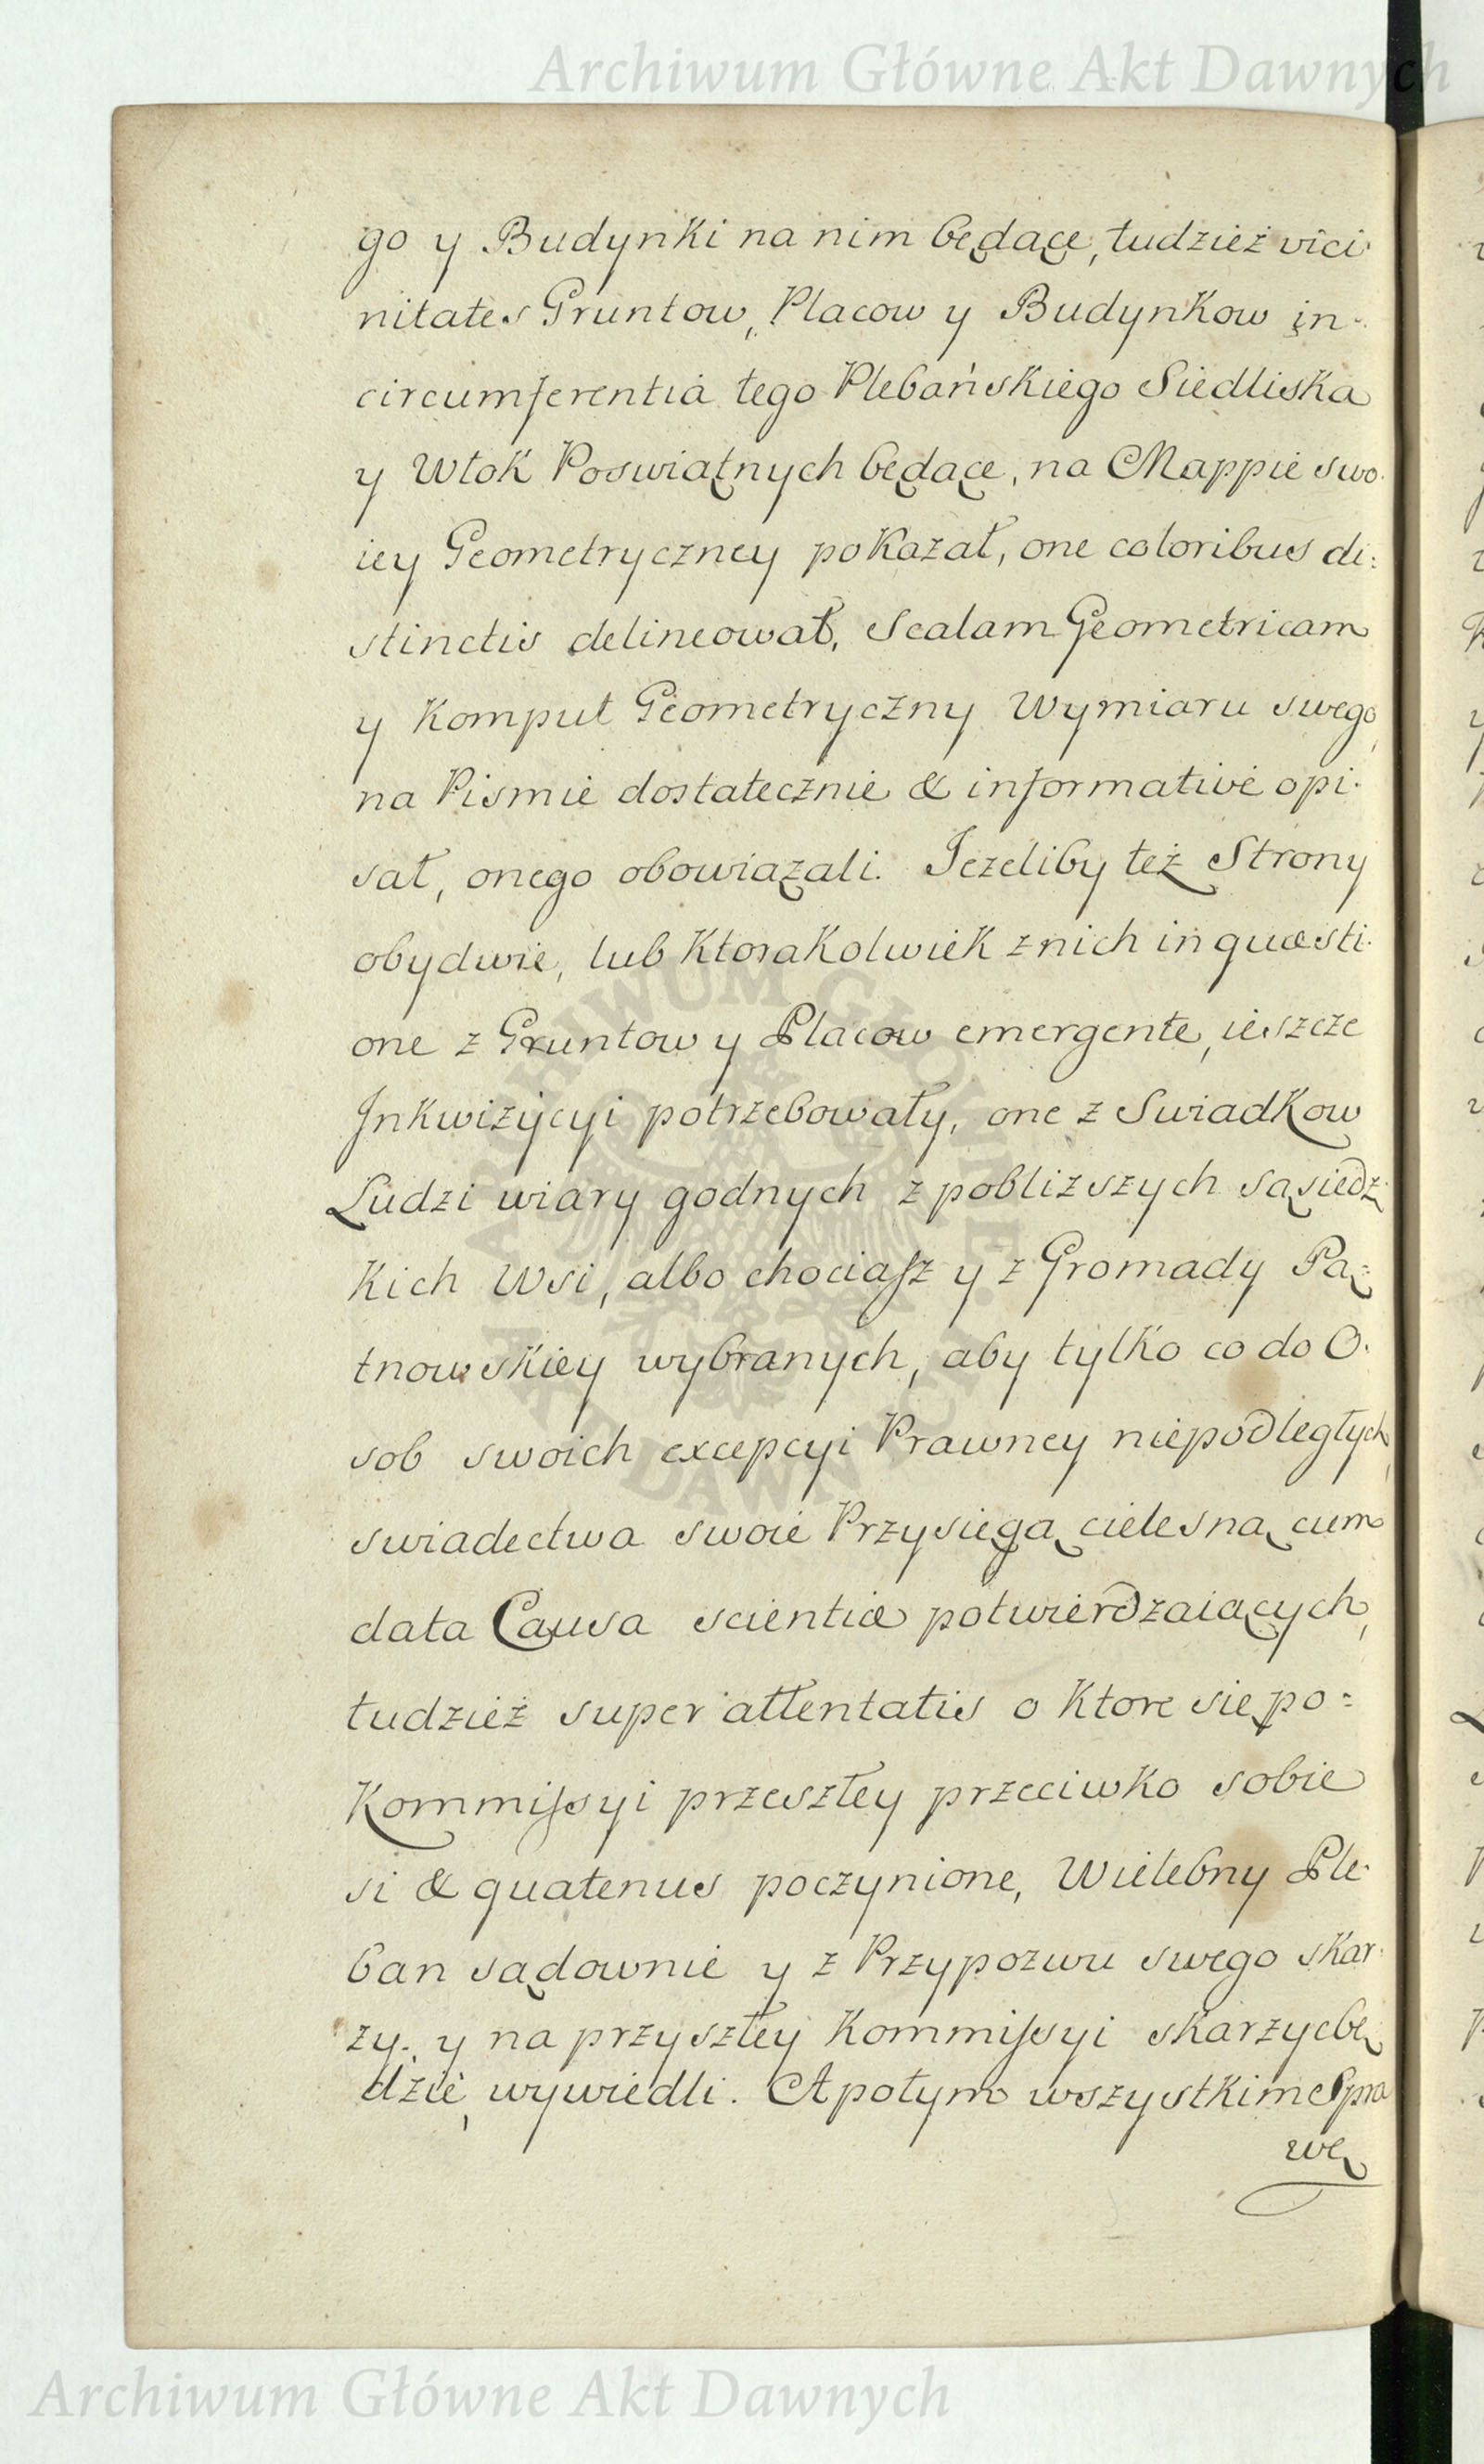 Archiwum Główne Akt Dawnych
go y Budynki na nim będące, tudzież vici
nitates Gruntow, Placow y Budynkow in-
circumferentia tego Plebańskiego Siedliska
y Włok Poswiątnych będące, na Mappie swo-
iey Geometryczney pokazał, one coloribus di:
stinctis delineował, Scalam Geometricam
y Komput Geometryczny Wymiaru swego,
na Pismie dostatecznie & informativè opi-
sał, onego obowiązali. Jezeliby też Strony
obydwie, lub Ktorakolwiek z nich in quæsti-
one z Gruntow y Placow emergente, ieszcze
Jnkwizycyi potrzebowały, one z Swiadkow
Ludzi wiary godnych z pobliższych sąsiedz-
kich Wsi, albo chociaſz y z Gromady Pą=
tnowskiey wybranych, aby tylko co do O-
sob swoich excepcyi Prawney niepodległych,
swiadectwa swoie Przysięgą cielesną cum
data Causa scientiæ potwierdzaiących,
tudzież super attentatis o Ktore się po=
Kommiſsyi przeszłey przeciwko sobie
si & quatenus poczynione, Wielebny Ple-
ban sądownie y z Przypozwu swego skar-
zy. y na przyszłey Kommiſsyi skarzyc bę
dzie, wywiedli. A potym wszystkim Spra
wę
ARCHIWUM GŁÓWNE AKT DAWNYCH
Archiwum Główne Akt Dawnych